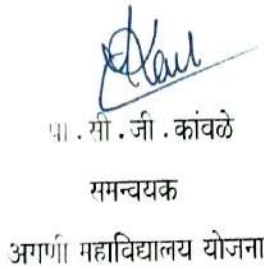 प्रा . सी . जी . कांवळे
समन्वयक
अगणी महाविद्यालय योजना